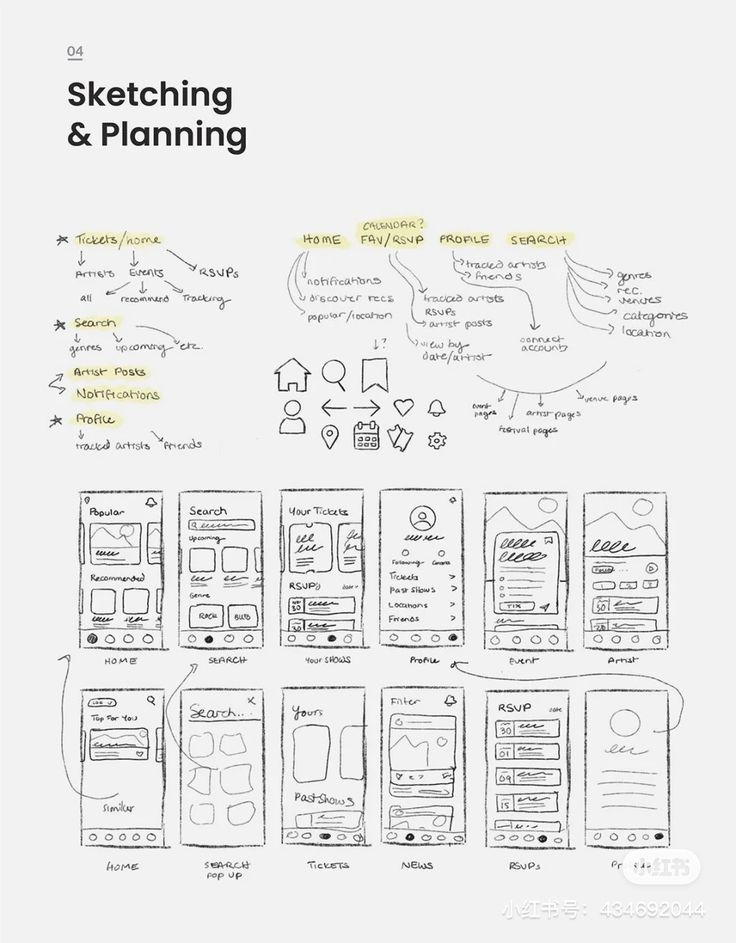 04
Sketching
& Planning
Tickets/home
Artists Events RSVPs
all recommend Tracking
Search
genres upcoming etc.
Artist Posts
Notifications
Profile
tracked artists friends
CALENDAR?
HOME FAV/RSVP PROFILE SEARCH
notifications
discover recs
popular/location
tracked artists
RSVPs
artist posts
view by
date/artist
tracked artists
friends
connect
accounts
genres
rec.
venues
categories
location
?
event
pages
festival pages
artist pages
venue pages
Popular
Recommended
HOME
Search
Upcoming
Genre
ROCK
SEARCH
Your Tickets
RSVP's
30
YOUR SHOWS
Following
Tickets >
Past Shows >
Locations >
Friends >
Profile
TIX
Event
30
Artist
Top For You
Similar
HOME
Search...
SEARCH
POP UP
Yours
Past Shows
TICKETS
Filter
NEWS
RSVP
30
01
09
15
RSVPs
小红书
小红书号：434692044